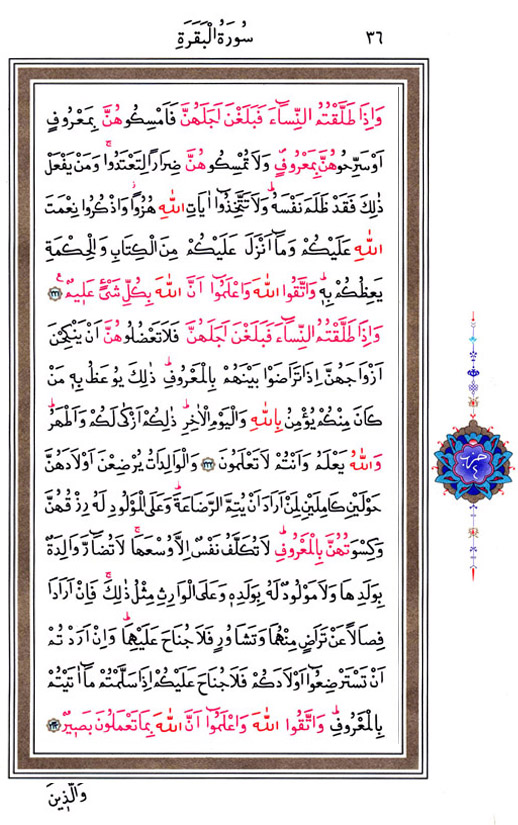 ٣٦ سُورَةُ الْبَقَرَةِ
وَاِذَا طَلَّقْتُمُ النِّسَٓاءَ فَبَلَغْنَ اَجَلَهُنَّ فَاَمْسِكُوهُنَّ بِمَعْرُوفٍ
اَوْ سَرِّحُوهُنَّ بِمَعْرُوفٍۖ وَلَا تُمْسِكُوهُنَّ ضِرَارًا لِتَعْتَدُواۚ وَمَنْ يَفْعَلْ
ذٰلِكَ فَقَدْ ظَلَمَ نَفْسَهُۜ وَلَا تَتَّخِذُٓوا اٰيَاتِ اللّٰهِ هُزُوًاۘ وَاذْكُرُوا نِعْمَتَ
اللّٰهِ عَلَيْكُمْ وَمَٓا اَنْزَلَ عَلَيْكُمْ مِنَ الْكِتَابِ وَالْحِكْمَةِ
يَعِظُكُمْ بِهٖۜ وَاتَّقُوا اللّٰهَ وَاعْلَمُٓوا اَنَّ اللّٰهَ بِكُلِّ شَيْءٍ عَلٖيمٌࣖ ٢٣١
وَاِذَا طَلَّقْتُمُ النِّسَٓاءَ فَبَلَغْنَ اَجَلَهُنَّ فَلَا تَعْضُلُوهُنَّ اَنْ يَنْكِحْنَ
اَزْوَاجَهُنَّ اِذَا تَرَاضَوْا بَيْنَهُمْ بِالْمَعْرُوفِۜ ذٰلِكَ يُوعَظُ بِهٖ مَنْ
كَانَ مِنْكُمْ يُؤْمِنُ بِاللّٰهِ وَالْيَوْمِ الْاٰخِرِۜ ذٰلِكُمْ اَزْكٰى لَكُمْ وَاَطْهَرُۜ
وَاللّٰهُ يَعْلَمُ وَاَنْتُمْ لَا تَعْلَمُونَ ٢٣٢ وَالْوَالِدَاتُ يُرْضِعْنَ اَوْلَادَهُنَّ
حَوْلَيْنِ كَامِلَيْنِ لِمَنْ اَرَادَ اَنْ يُتِمَّ الرَّضَاعَةَۜ وَعَلَى الْمَوْلُودِ لَهُ رِزْقُهُنَّ
وَكِسْوَتُهُنَّ بِالْمَعْرُوفِۜ لَا تُكَلَّفُ نَفْسٌ اِلَّا وُسْعَهَاۚ لَا تُضَٓارَّ وَالِدَةٌ
بِوَلَدِهَا وَلَا مَوْلُودٌ لَهُ بِوَلَدِهٖ وَعَلَى الْوَارِثِ مِثْلُ ذٰلِكَۚ فَاِنْ اَرَادَا
فِصَالًا عَنْ تَرَاضٍ مِنْهُمَا وَتَشَاوُرٍ فَلَا جُنَاحَ عَلَيْهِمَاۜ وَاِنْ اَرَدْتُمْ
اَنْ تَسْتَرْضِعُٓوا اَوْلَادَكُمْ فَلَا جُنَاحَ عَلَيْكُمْ اِذَا سَلَّمْتُمْ مَٓا اٰتَيْتُمْ
بِالْمَعْرُوفِۜ وَاتَّقُوا اللّٰهَ وَاعْلَمُٓوا اَنَّ اللّٰهَ بِمَا تَعْمَلُونَ بَصٖيرٌ ٢٣٣
وَالَّذٖينَ
حزب